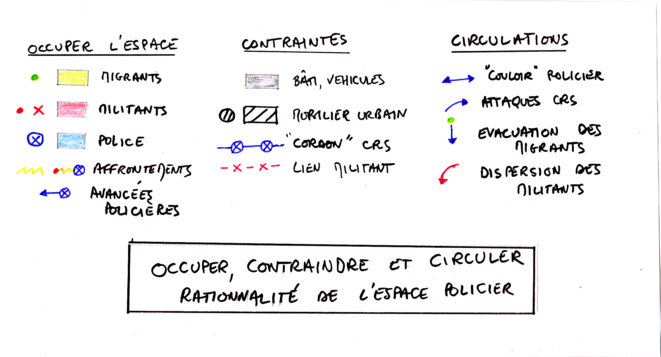 OCCUPER L'ESPACE
MIGRANTS
MILITANTS
POLICE
AFFRONTEMENTS
AVANCÉES
POLICIÈRES
CONTRAINTES
BÂTI, VEHICULES
MOBILIER URBAIN
"CORDON" CRS
LIEN MILITANT
CIRCULATIONS
"COULOIR" POLICIER
ATTAQUES CRS
EVACUATION DES
MIGRANTS
DISPERSION DES
MILITANTS
OCCUPER, CONTRAINDRE ET CIRCULER
RATIONNALITÉ DE L'ESPACE POLICIER